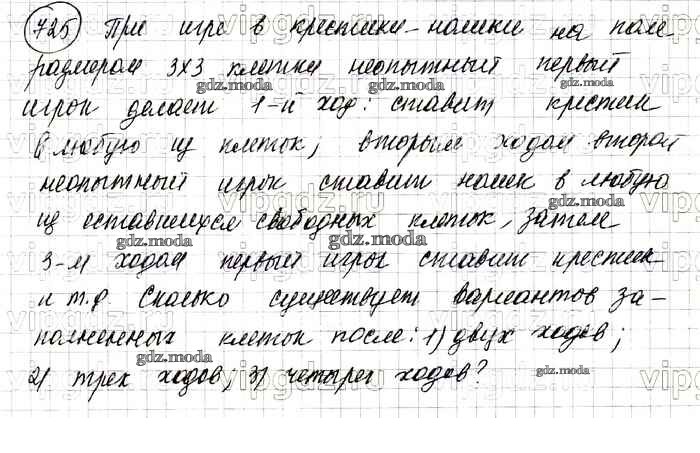 725 При игре в крестики-нолики на поле
размером 3х3 клетки неопытный первый
игрок делает 1-й ход: ставит крестик
в любую из клеток; вторым ходом второй
неопытный игрок ставит нолик в любую
из оставшихся свободных клеток, затем
3-м ходом первый игрок ставит крестик
и т.д. Сколько существует вариантов за-
полненных клеток после: 1) двух ходов;
2) трех ходов, 3) четырех ходов?